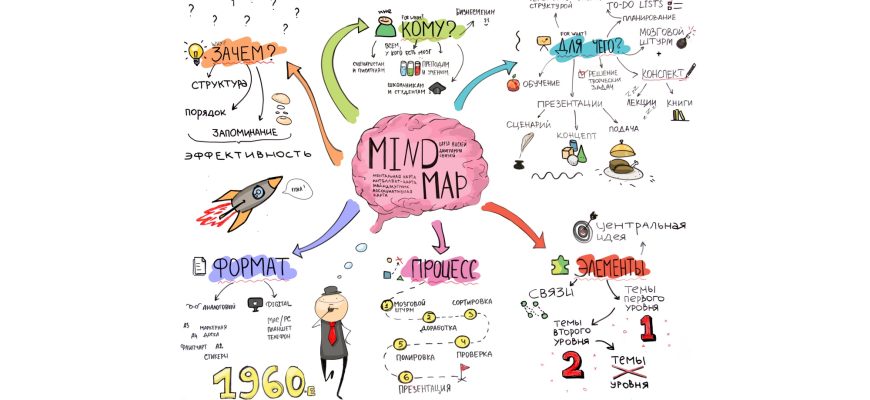 ЗАЧЕМ?
СТРУКТУРА
ПОРЯДОК
ЗАПОМИНАНИЕ
ЭФФЕКТИВНОСТЬ
FOR WHOM?
КОМУ?
БИЗНЕСМЕНАМ
ВСЕМ,
У КОГО ЕСТЬ МОЗГ
СЦЕНАРИСТАМ
И ПИСАТЕЛЯМ
ПРЕПОДАМ
И УЧЕНЫМ
ШКОЛЬНИКАМ
И СТУДЕНТАМ
СТРУКТУРОЙ
TO-DO LISTS
ПЛАНИРОВАНИЕ
FOR WHAT?
ДЛЯ ЧЕГО?
МОЗГОВОЙ
ШТУРМ
ОБУЧЕНИЕ
РЕШЕНИЕ
ТВОРЧЕСКИХ
ЗАДАЧ
КОНСПЕКТ
ЛЕКЦИИ
КНИГИ
ПРЕЗЕНТАЦИИ
СЦЕНАРИЙ
КОНЦЕПТ
ПОДАЧА
MIND
MAP
КАРТА МЫСЛЕЙ
ДИАГРАММА
СВЯЗЕЙ
МЕНТАЛЬНАЯ КАРТА
ИНТЕЛЛЕКТ-КАРТА
АССОЦИАТИВНАЯ
КАРТА
ФОРМАТ
АНАЛОГОВЫЙ
DIGITAL
MAC/PC
ПЛАНШЕТ
ТЕЛЕФОН
А3
А4
МАРКЕРНАЯ
ДОСКА
ФЛИПЧАРТ
СТИКЕРЫ
1960-Е
ПРОЦЕСС
1 МОЗГОВОЙ
ШТУРМ
2
ДОРАБОТКА
СОРТИРОВКА
3
4
ПРОВЕРКА
5
ПОЛИРОВКА
6
ПРЕЗЕНТАЦИЯ
ЦЕНТРАЛЬНАЯ
ИДЕЯ
ЭЛЕМЕНТЫ
СВЯЗИ
ТЕМЫ
ПЕРВОГО
УРОВНЯ
1
ТЕМЫ
ВТОРОГО
УРОВНЯ
2
ТЕМЫ
X
УРОВНЯ